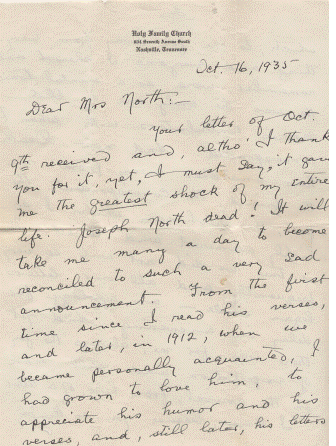 Holy Family Church
Seventh Avenue South
Nashville, Tennessee
Oct. 16, 1935
Dear Mrs North:-
Your letter of Oct.
9th received and, altho' I thank
you for it, yet, I must say, it gave
me the greatest shock of my entire
life. Joseph North dead! It will
take me many a day to become
reconciled to such a very sad
announcement. From the first
time since I read his verses,
and later, in 1912, when we
became personally acquainted, I
had grown to love him, to
appreciate his humor and his
verses, and, still later, his letters